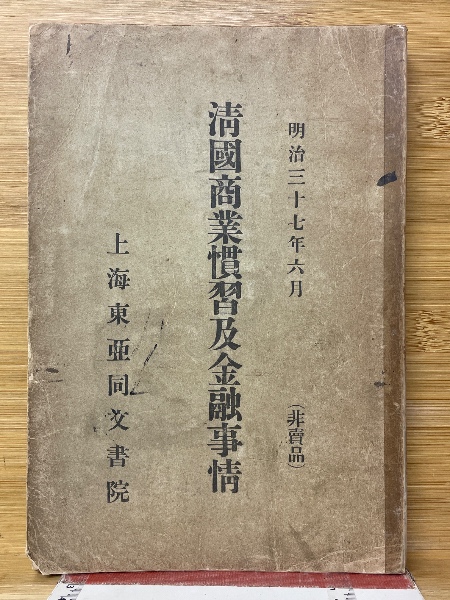 明治三十七年六月
（非賣品）
淸國商業慣習及金融事情
上海東亞同文書院